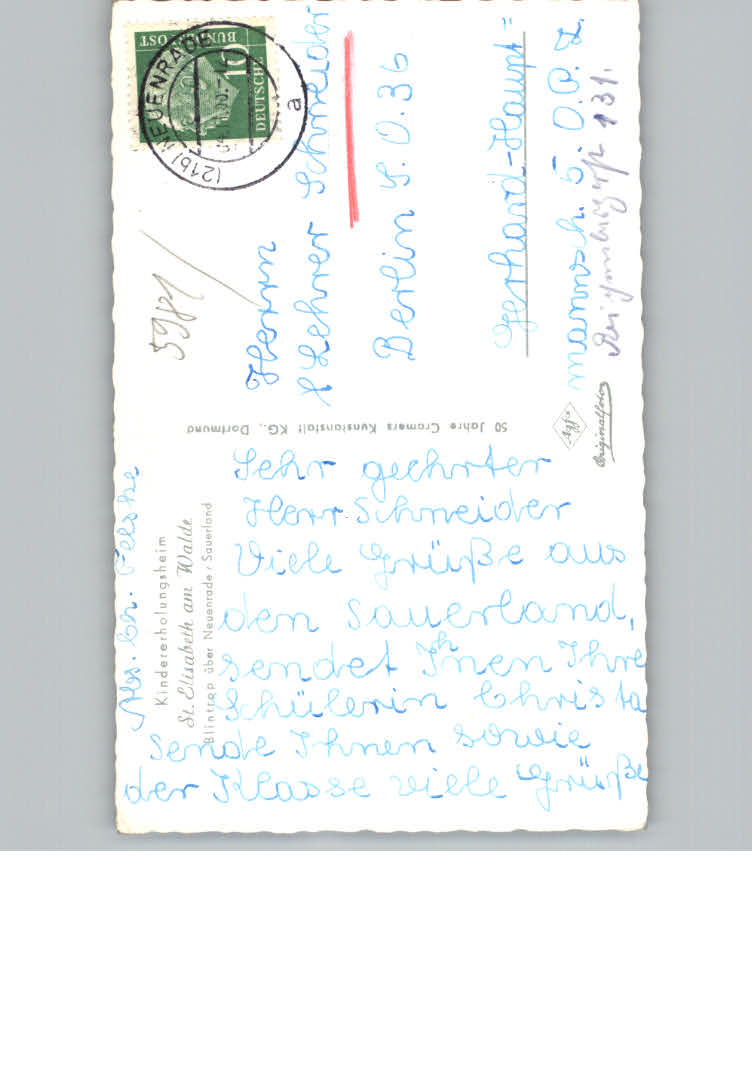 Abs. Ch.
Kindererholungsheim
St. Elisabeth am Walde
Blintrop über Neuenrade / Sauerland
Sehr geehrter
Herr Schneider
Viele Grüße aus
den Sauerland,
sendet Ihnen Ihre
Schülerin Christa
Sende Ihnen sowie
der Klasse viele Grüße
50 Jahre Cramers Kunstanstalt KG., Dortmund
DEUTSCHE
BUNDESPOST
10
(21b) NEUENRADE
a
Herrn
Lehrer Schneider
Berlin S.O. 36
Gerhard-Haupt=
mannsch. 5. O.P.Z.
131.
Agfa
Originalfoto